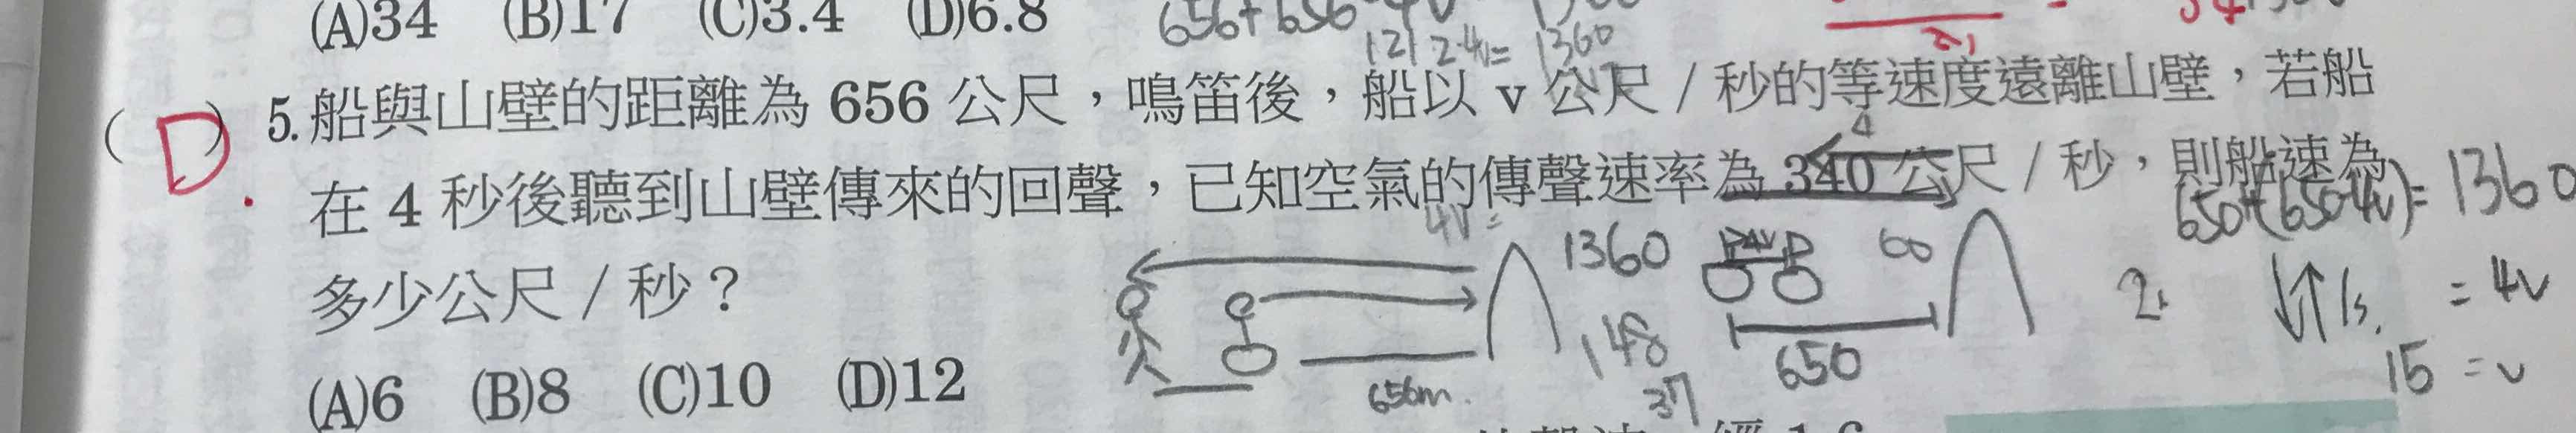 (A)34 (B)17 (C)3.4 (D)6.8
656+656
1212 4v= 1360
( D ) 5. 船與山壁的距離為 656 公尺，鳴笛後，船以 v 公尺/秒的等速度遠離山壁，若船
4
在 4 秒後聽到山壁傳來的回聲，已知空氣的傳聲速率為 340 公尺/秒，則船速為
650+(650-4v)= 1360
4v=
多少公尺/秒？
1360
= 4v
148
650
15 = v
(A)6 (B)8 (C)10 (D)12
656m.
37